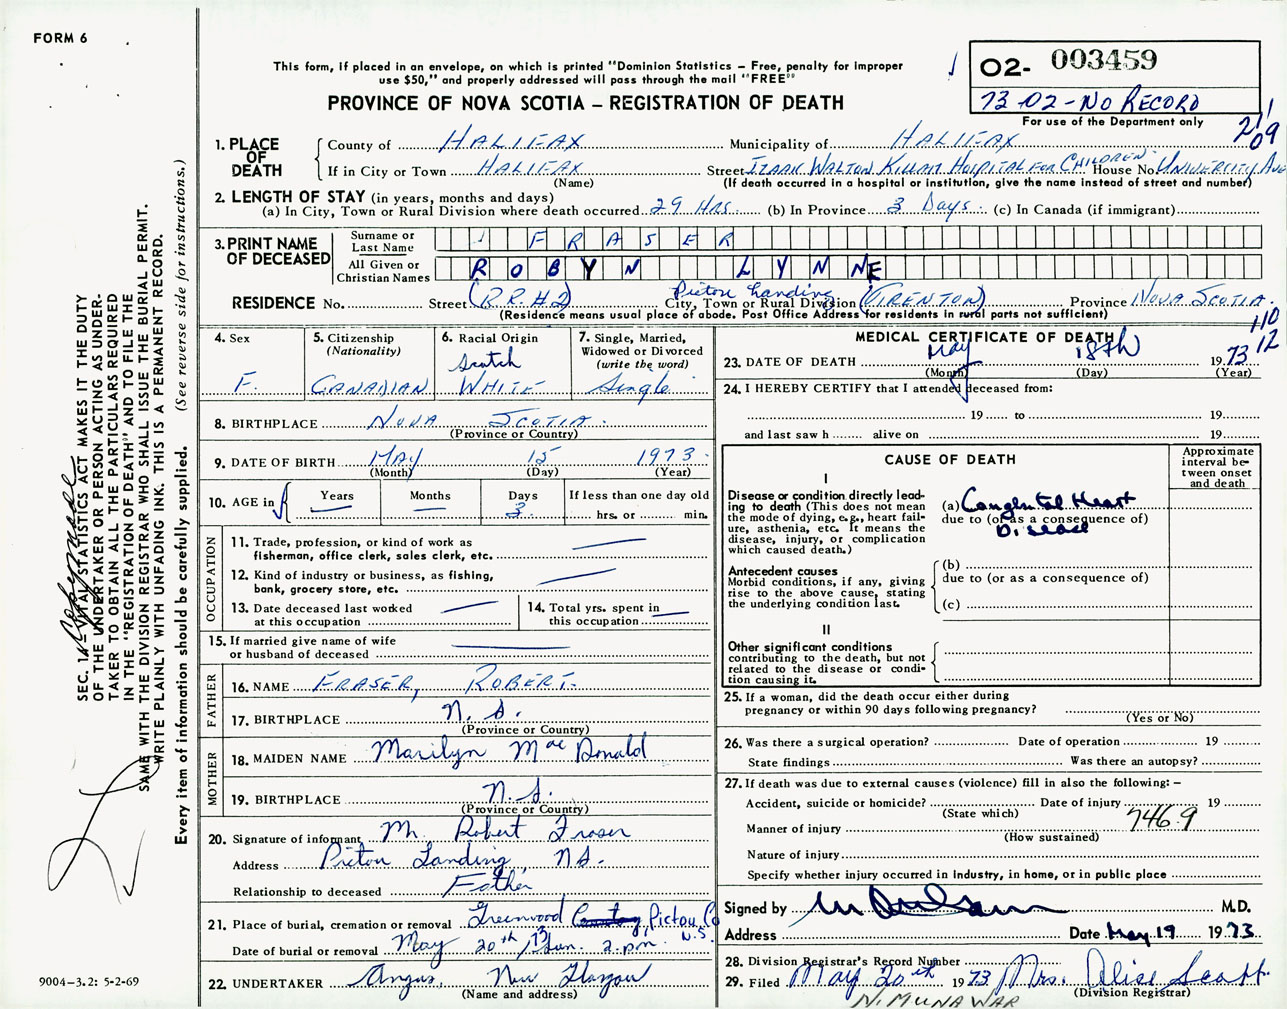 FORM 6
This form, if placed in an envelope, on which is printed "Dominion Statistics – Free, penalty for improper
use $50," and properly addressed will pass through the mail "FREE"
PROVINCE OF NOVA SCOTIA – REGISTRATION OF DEATH
O2- 003459
73-02-NO RECORD
For use of the Department only
21/09
1. PLACE OF DEATH
County of HALIFAX Municipality of HALIFAX
If in City or Town HALIFAX Street IZAAK WALTON KILLAM HOSPITAL FOR CHILDREN House No. UNIVERSITY AVE
(Name) (If death occurred in a hospital or institution, give the name instead of street and number)
2. LENGTH OF STAY (in years, months and days)
(a) In City, Town or Rural Division where death occurred 29 HRS. (b) In Province 3 Days. (c) In Canada (if immigrant)
3. PRINT NAME OF DECEASED
Surname or Last Name FRASER
All Given or Christian Names ROBYN LYNNE
Pictou Landing
RESIDENCE No. Street (R.R.#2) City, Town or Rural Division (TRENTON) Province NOVA SCOTIA
(Residence means usual place of abode. Post Office Address for residents in rural parts not sufficient)
110
12
4. Sex
F.
5. Citizenship
(Nationality)
CANADIAN
6. Racial Origin
Scotch
WHITE
7. Single, Married,
Widowed or Divorced
(write the word)
Single
8. BIRTHPLACE NOVA SCOTIA.
(Province or Country)
9. DATE OF BIRTH MAY 15 1973
(Month) (Day) (Year)
10. AGE in Years — Months — Days 3 If less than one day old
hrs. or min.
OCCUPATION
11. Trade, profession, or kind of work as
fisherman, office clerk, sales clerk, etc. —
12. Kind of industry or business, as fishing,
bank, grocery store, etc. —
13. Date deceased last worked
at this occupation —
14. Total yrs. spent in
this occupation —
15. If married give name of wife
or husband of deceased —
FATHER
16. NAME FRASER, ROBERT.
17. BIRTHPLACE N.S.
(Province or Country)
MOTHER
18. MAIDEN NAME Marilyn MacDonald
19. BIRTHPLACE N.S.
(Province or Country)
20. Signature of informant Mr. Robert Fraser
Address Pictou Landing N.S.
Relationship to deceased Father
21. Place of burial, cremation or removal Greenwood Pictou Co N.S.
Date of burial or removal May 20th/73 Sun. 2 p.m.
22. UNDERTAKER Angus, New Glasgow
(Name and address)
MEDICAL CERTIFICATE OF DEATH
23. DATE OF DEATH May 18th 1973
(Month) (Day) (Year)
24. I HEREBY CERTIFY that I attended deceased from:
19 to 19
and last saw h alive on 19
CAUSE OF DEATH
Approximate
interval be-
tween onset
and death
I
Disease or condition directly lead-
ing to death (This does not mean
the mode of dying, e.g., heart fail-
ure, asthenia, etc. It means the
disease, injury, or complication
which caused death.)
(a) Congenital Heart
due to (or as a consequence of)
Disease
Antecedent causes
Morbid conditions, if any, giving
rise to the above cause, stating
the underlying condition last.
(b)
due to (or as a consequence of)
(c)
II
Other significant conditions
contributing to the death, but not
related to the disease or condi-
tion causing it.
25. If a woman, did the death occur either during
pregnancy or within 90 days following pregnancy?
(Yes or No)
26. Was there a surgical operation? Date of operation 19
State findings Was there an autopsy?
27. If death was due to external causes (violence) fill in also the following: –
Accident, suicide or homicide? Date of injury 19
(State which)
7469
Manner of injury
(How sustained)
Nature of injury
Specify whether injury occurred in industry, in home, or in public place
Signed by M.D.
Address Date May 19 1973
28. Division Registrar's Record Number
29. Filed May 20th 1973 Mrs. Alice Scott
(Division Registrar)
N. MUNAWAR
SEC. 14 VITAL STATISTICS ACT MAKES IT THE DUTY
OF THE UNDERTAKER OR PERSON ACTING AS UNDER-
TAKER TO OBTAIN ALL THE PARTICULARS REQUIRED
IN THE "REGISTRATION OF DEATH" AND TO FILE THE
SAME WITH THE DIVISION REGISTRAR WHO SHALL ISSUE THE BURIAL PERMIT.
WRITE PLAINLY WITH UNFADING INK. THIS IS A PERMANENT RECORD.
Every item of information should be carefully supplied. (See reverse side for instructions.)
9004-3.2: 5-2-69